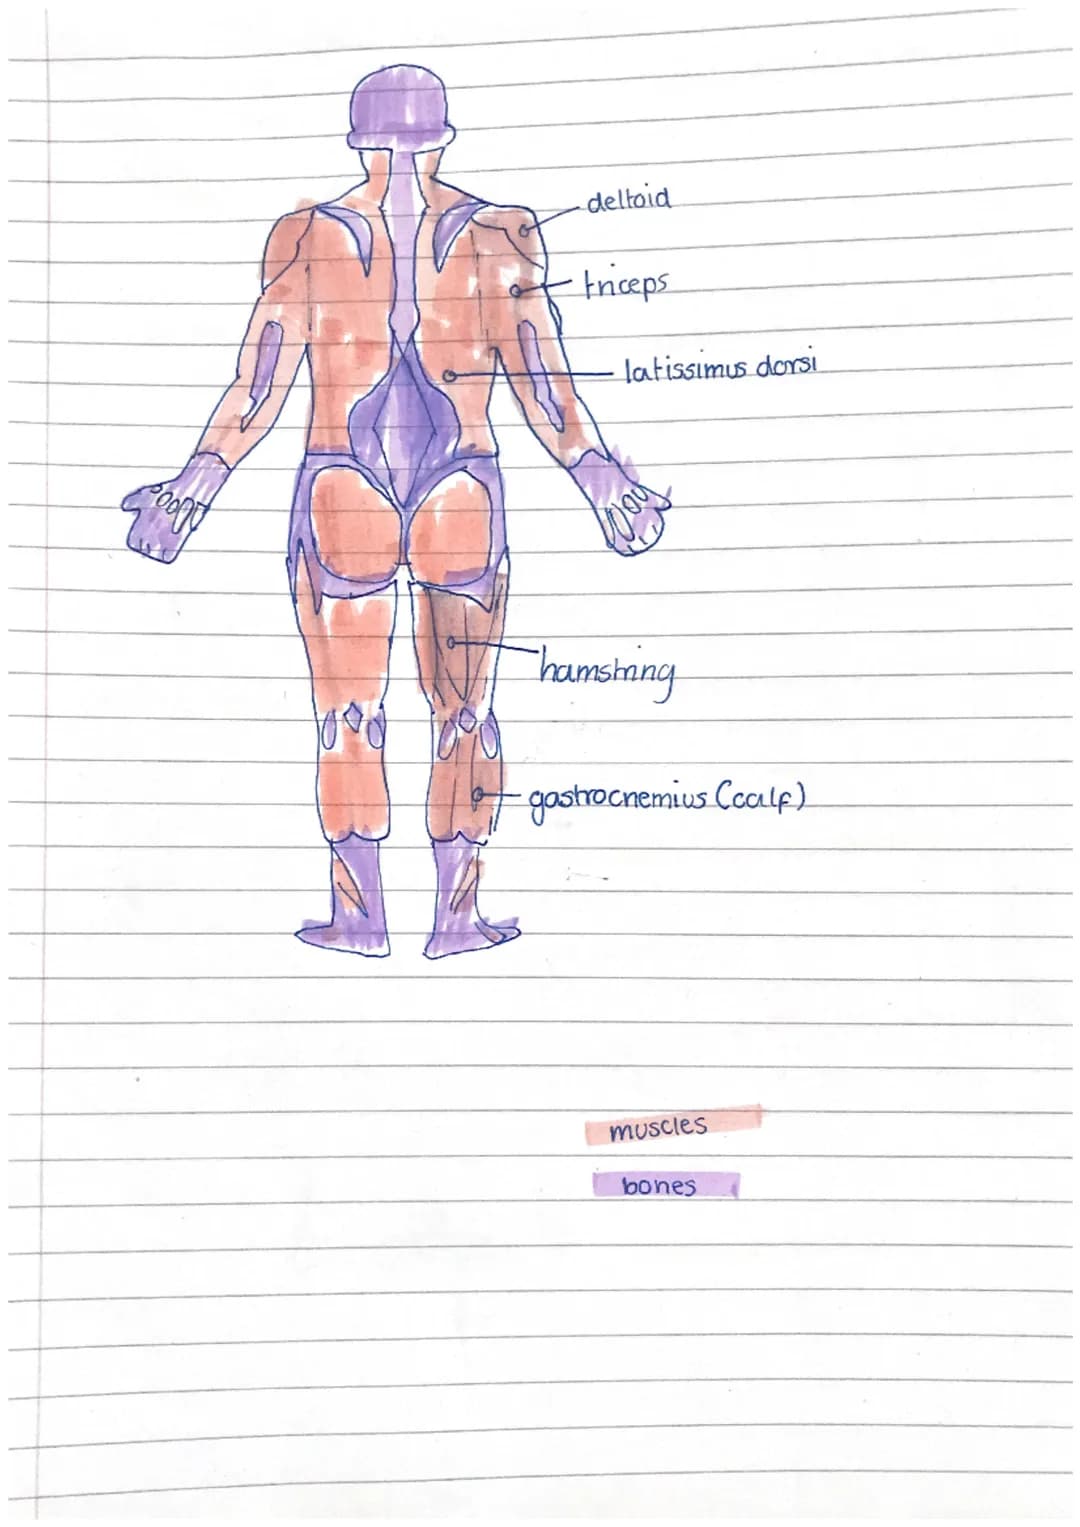 deltoid
triceps
latissimus dorsi
hamstring
gastrocnemius (calf)
muscles
bones